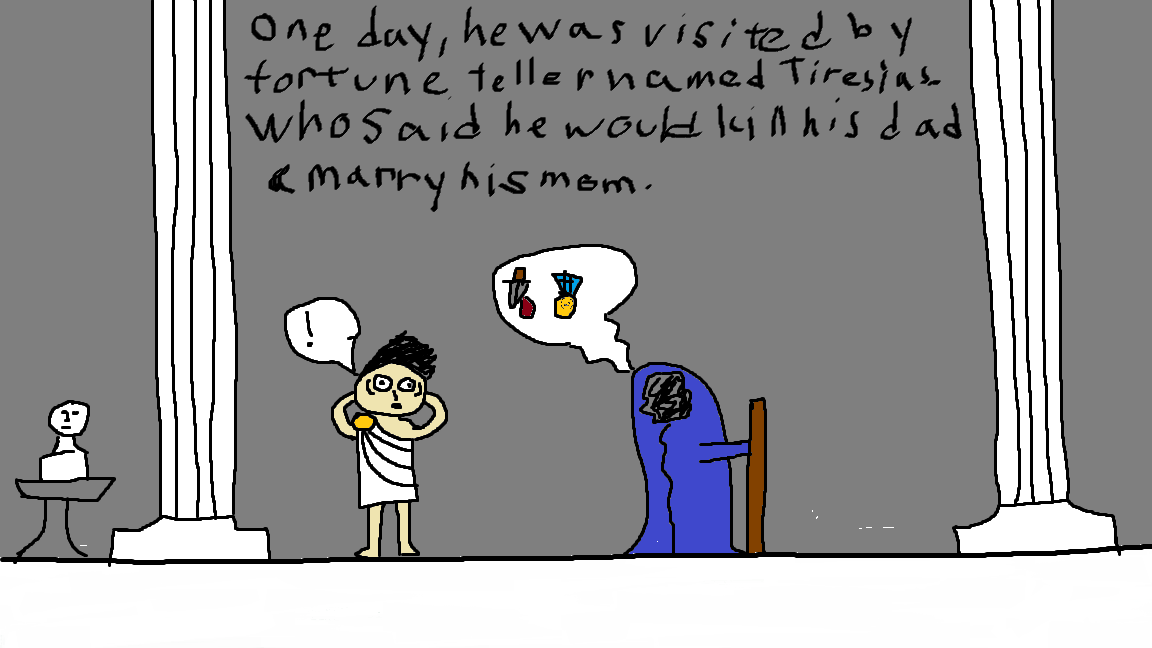 One day, he was visited by
fortune teller named Tiresias.
Who said he would kill his dad
& marry his mom.
!